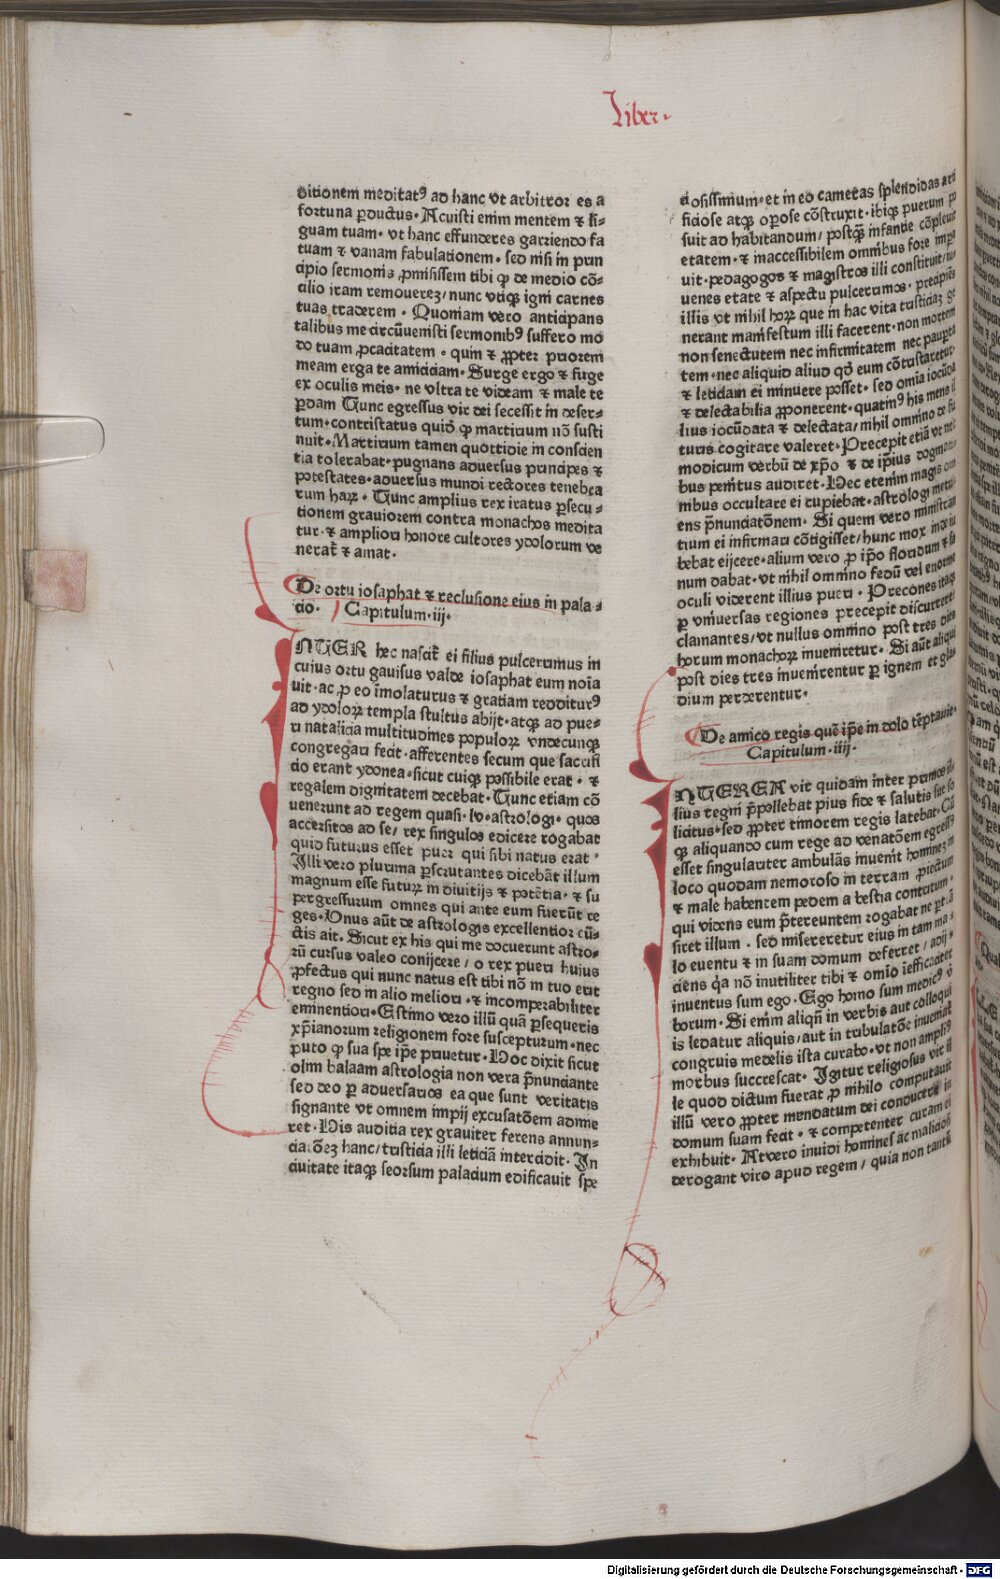 Liber·
ditionem meditatꝰ ad hanc vt arbitror es a
fortuna ꝑductus· Acuisti enim mentem ⁊ li⸗
guam tuam· vt hanc effunderes garriendo fa
tuam ⁊ vanam fabulationem· sed nisi in prin
cipio sermonis ꝓmisissem tibi ꝙ de medio cõ⸗
cilio iram remouereꝫ/ nunc vtiqꝫ igni carnes
tuas traderem· Quoniam vero anticipans
talibus me circũuenisti sermonibꝰ suffero mo
do tuam ꝓcacitatem· quin ⁊ ꝓpter priorem
meam erga te amicitiam· Surge ergo ⁊ fuge
ex oculis meis· ne vltra te videam ⁊ male te
ꝑdam Tunc egressus vir dei secessit in deser⸗
tum· contristatus quid ꝙ martirium nõ susti
nuit· Martirium tamen quottidie in conscien
tia tolerabat· pugnans aduersus principes ⁊
potestates· aduersus mundi rectores tenebra
rum harꝝ· Tunc amplius rex iratus ꝑsecu⸗
tionem grauiorem contra monachos medita
tur· ⁊ ampliori honore cultores ydolorum ve
nerat̃ ⁊ amat·
De ortu iosaphat ⁊ reclusione eius in pala⸗
cio· Capitulum·iij·
NTER hec nascit̃ ei filius pulcerrimus in
cuius ortu gauisus valde iosaphat eum noĩa
uit· ac ꝓ eo ĩmolaturus ⁊ gratiam redditurꝰ
ad ydolorꝝ templa stultus abijt· atqꝫ ad pue⸗
ri natalicia multitudines populorꝝ vndecunqꝫ
congregari fecit· afferentes secum que sacrifi
cio erant ydonea· sicut cuiqꝫ possibile erat· ⁊
regalem dignitatem decebat· Tunc etiam cõ
uenerunt ad regem quasi·lv·astrologi· quos
accersitos ad se/ rex singulos edicere rogabat
quid futurus esset puer qui sibi natus erat·
Illi vero plurima ꝑscrutantes dicebãt illum
magnum esse futurꝝ in diuitijs ⁊ potẽtia· ⁊ su
pergressurum omnes qui ante eum fuerũt re
ges· Vnus aũt de astrologis excellentior cũ⸗
ctis ait· Sicut ex his qui me docuerunt astro⸗
rũ cursus valeo conijcere/ o rex pueri huius
ꝓfectus qui nunc natus est tibi nõ in tuo erit
regno sed in alio meliori· ⁊ incomperabiliter
eminentiori· Estimo vero illũ quã ꝑsequeris
xp̃ianorum religionem fore suscepturum· nec
puto ꝙ sua spe ip̃e priuetur· Hoc dixit sicut
olim balaam astrologia non vera p̃nunciante
sed deo ꝑ aduersarios ea que sunt veritatis
signante vt omnem impij excusatõem adime
ret· His auditis rex grauiter ferens annun⸗
ciatõeꝫ hanc/ tristicia illi leticiã intercidit· In
ciuitate itaqꝫ seorsum palacium edificauit spe
ciosissimum· et in eo cameras splendidas arti
ficiose atqꝫ oꝑose cõstruxit· ibiqꝫ puerum po
suit ad habitandum/ postqꝫ infantie cõpleuit
etatem· ⁊ inaccessibilem omnibus fore imꝑa
uit· pedagogos ⁊ magistros illi constituit/ iu⸗
uenes etate ⁊ aspectu pulcerrimos· precipiẽs
illis vt nihil horꝝ que in hac vita tristiciaꝫ ge
nerant manifestum illi facerent· non mortem
non senectutem nec infirmitatem nec pauꝑta
tem· nec aliquid aliud qd̃ eum cõtristaretur·
⁊ leticiam ei minuere posset· sed omĩa iocũda
⁊ delectabilia ꝓponerent· quatinꝰ his mens il
lius iocũdata ⁊ delectata/ nihil omnino de fu
turis cogitare valeret· Precepit etiã vt nec
modicum verbũ de xp̃o ⁊ de ip̃ius dogmati⸗
bus penitus audiret· Hec etenim magis om
nibus occultare ei cupiebat· astrologi metu⸗
ens p̃nunciatõnem· Si quem vero ministran
tium ei infirmari cõtigisset/ hunc mox inde iu
bebat eijcere· alium vero ꝓ ip̃o floridum ⁊ sa
num dabat· vt nihil omnino fedũ vel enorme
oculi viderent illius pueri· Precones itaqꝫ
ꝑ vniuersas regiones precepit discurrere/
clamantes/ vt nullus omnino post tres dies
horum monachorꝝ inueniretur· Si aũt aliqui
post dies tres inuenirentur ꝑ ignem et gla⸗
dium perderentur·
De amico regis quẽ ip̃e in dolo tẽptauit·
Capitulum·iiij·
NTEREA vir quidam inter primos il⸗
lius regni p̃pollebat pius fide ⁊ salutis sue so
licitus· sed ꝓpter timorem regis latebat· Cũ
qꝫ aliquando cum rege ad venatõem egressꝰ
esset singulariter ambulãs inuenit homineꝫ in
loco quodam nemoroso in terram ꝓiectum
⁊ male habentem pedem a bestia contritum·
qui videns eum p̃tereuntem rogabat ne ꝑt̃rã
siret illum· sed misereretur eius in tam ma⸗
lo euentu ⁊ in suam domum deferret/ adij⸗
ciens q̃a nõ inutiliter tibi ⁊ omĩo ĩefficaciter
inuentus sum ego· Ego homo sum medicꝰ v̾
borum· Si enim aliqñ in verbis aut colloqui
is ledatur aliquis/ aut in tribulatõe inueniat̃
congruis medelis ista curabo· vt non ampliꝰ
morbus succrescat· Igitur religiosus vir il
le quod dictum fuerat ꝓ nihilo computauit
illũ vero ꝓpter mandatum dei conducere in
domum suam fecit· ⁊ competenter curam ei
exhibuit· At vero inuidi homines ac maliciosi
derogant viro apud regem/ quia non tantũ
Digitalisierung gefördert durch die Deutsche Forschungsgemeinschaft - DFG